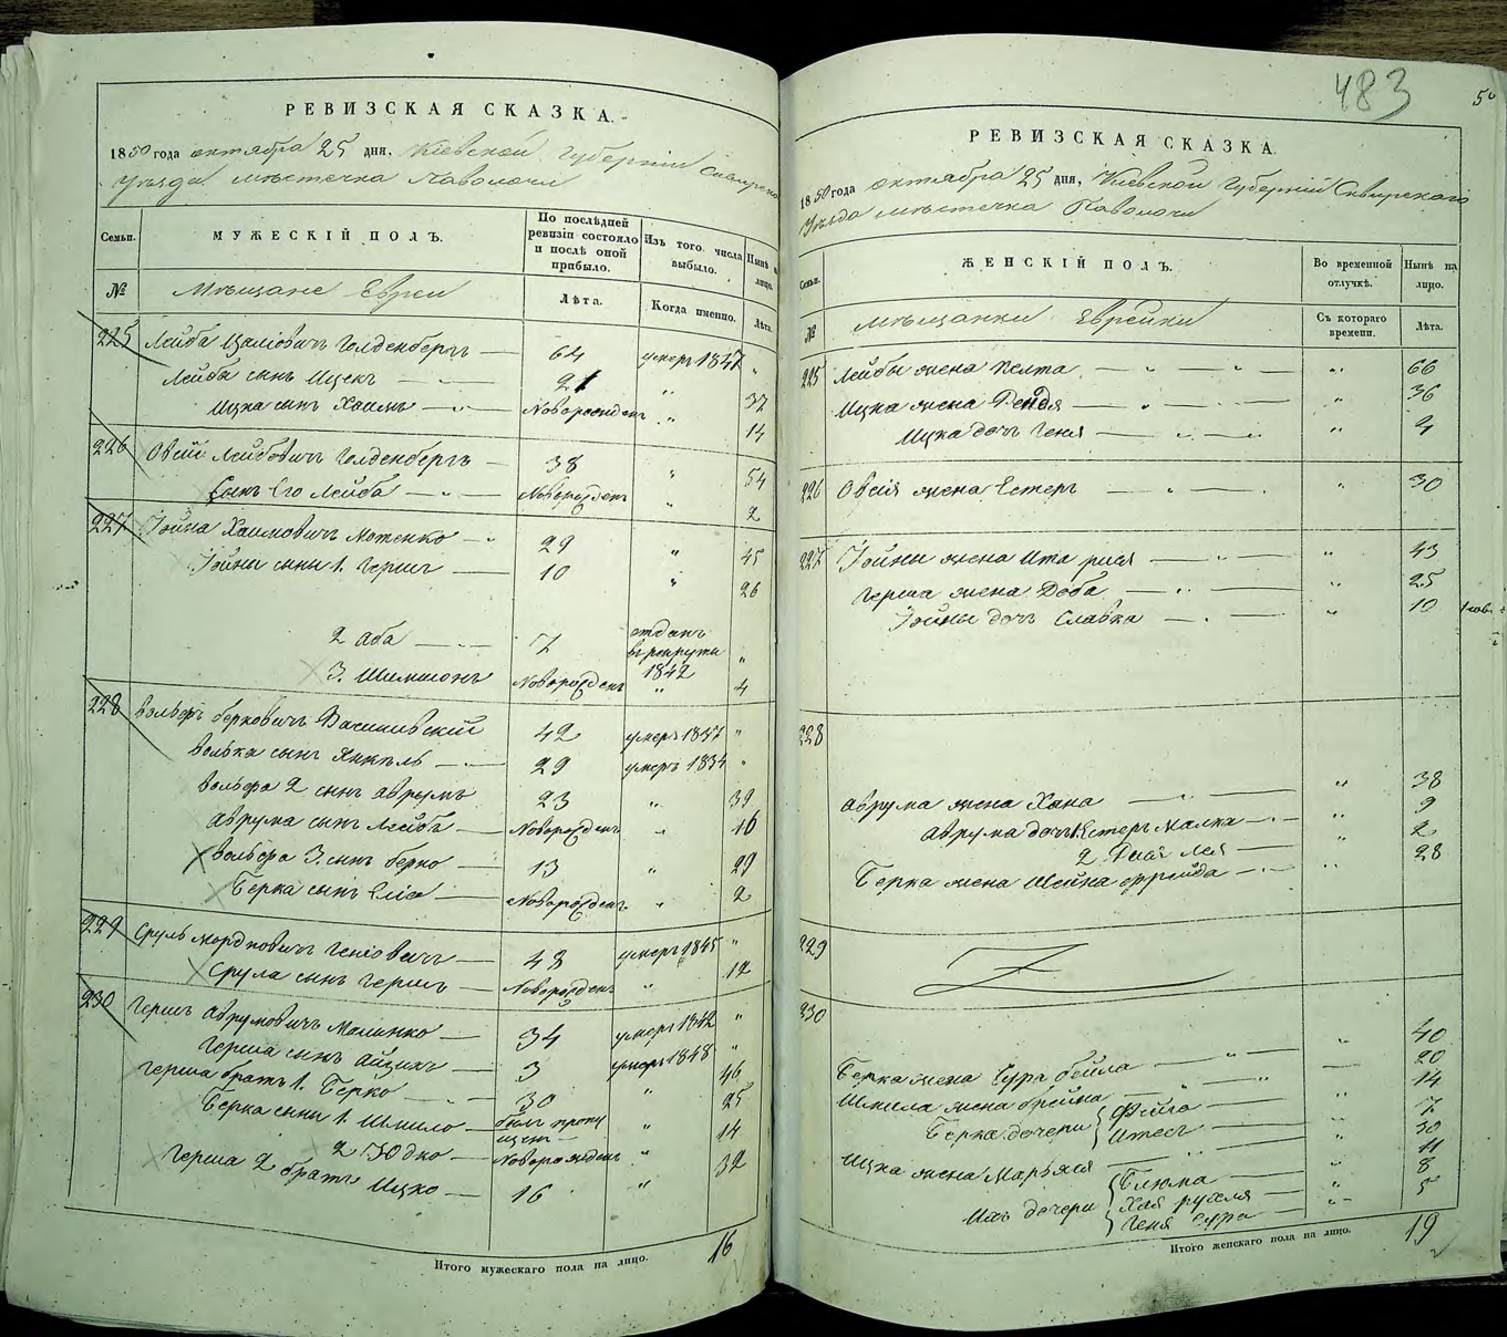 РЕВИЗСКАЯ СКАЗКА.
1850 года октября 25 дня, Кіевской Губерніи Сквирскаго
Уѣзда мѣстечка Паволочи
Семьи.
МУЖЕСКІЙ ПОЛЪ.
По послѣдней ревизіи состояло и послѣ оной прибыло.
Изъ того числа выбыло.
Нынѣ на лицо.
№
Мѣщане Евреи
Лѣта.
Когда именно.
Лѣта.
225 Лейба Голденбергъ — 64 умеръ 1847 "
Лейба сынъ Ицекъ — 21 " 37
Ицка сынъ Хаимъ — " — Новорожденъ " 14
226 Овсій Лейбовичъ Голденбергъ — 38 " 54
Сынъ Его Лейба — " — Новорожденъ " 2
227 Іойна Хаимовичъ Мотенко — " 29 " 45
Іойны сыны 1. Гершъ — 10 " 26
2 Аба — 7 отданъ въ рекруты 1842 "
3. Шимшонъ Новорожденъ " 4
228 Вольфъ Берковичъ 42 умеръ 1837 "
Волька сынъ Янкель — 29 умеръ 1834 "
Вольфа 2 сынъ Аврумъ 23 " 39
Аврума сынъ Лейба — Новорожденъ " 16
Вольфа 3. сынъ Берко — 13 " 29
Берка сынъ — Новорожденъ " 2
229 Сруль Мордковичъ — 48 умеръ 1845 "
Срула сынъ Гершъ — Новорожденъ " 12
230 Гершъ Аврумовичъ Малинко — 34 умеръ 1842 "
Герша сынъ Айзикъ — 3 умеръ 1848 "
Герша братъ 1. Берко — 30 " 46
Берка сыны 1. Шмило — былъ пропущенъ " 25
2 Юдко — Новорожденъ " 14
Герша 2 братъ Ицко — 16 " 32
Итого мужескаго пола на лицо. 16
483
РЕВИЗСКАЯ СКАЗКА.
1850 года октября 25 дня, Кіевской Губерніи Сквирскаго
Уѣзда мѣстечка Паволочи
Семьи.
ЖЕНСКІЙ ПОЛЪ.
Во временной отлучкѣ.
Нынѣ на лицо.
№
Мѣщанки Еврейки
Съ котораго времени.
Лѣта.
225 Лейбы жена — " — " — " 66
Ицка жена — " — " 36
Ицка дочь Геня — " — " 4
226 Овсія жена Естеръ — " — " 30
227 Іойны жена Ита — " — " 43
Герша жена Доба — " — " 25
Іойны дочь Славка — " — " 10
228
Аврума жена Хана — " — " 38
Аврума дочь 1. Естеръ Малка — " — " 9
2 Лея — " 2
Берка жена Шейна Фрейда — " — " 28
229
230
Берка жена Сура Бейла — " — " 40
Шмила жена Брейна — " 20
Берка дочери Фейга — 14
Итесъ — 7
Ицка жена Марьяся — " 30
Ихъ дочери Блюма — " 11
Хая Рухля — " 8
Геня Сура — " 5
Итого женскаго пола на лицо. 19